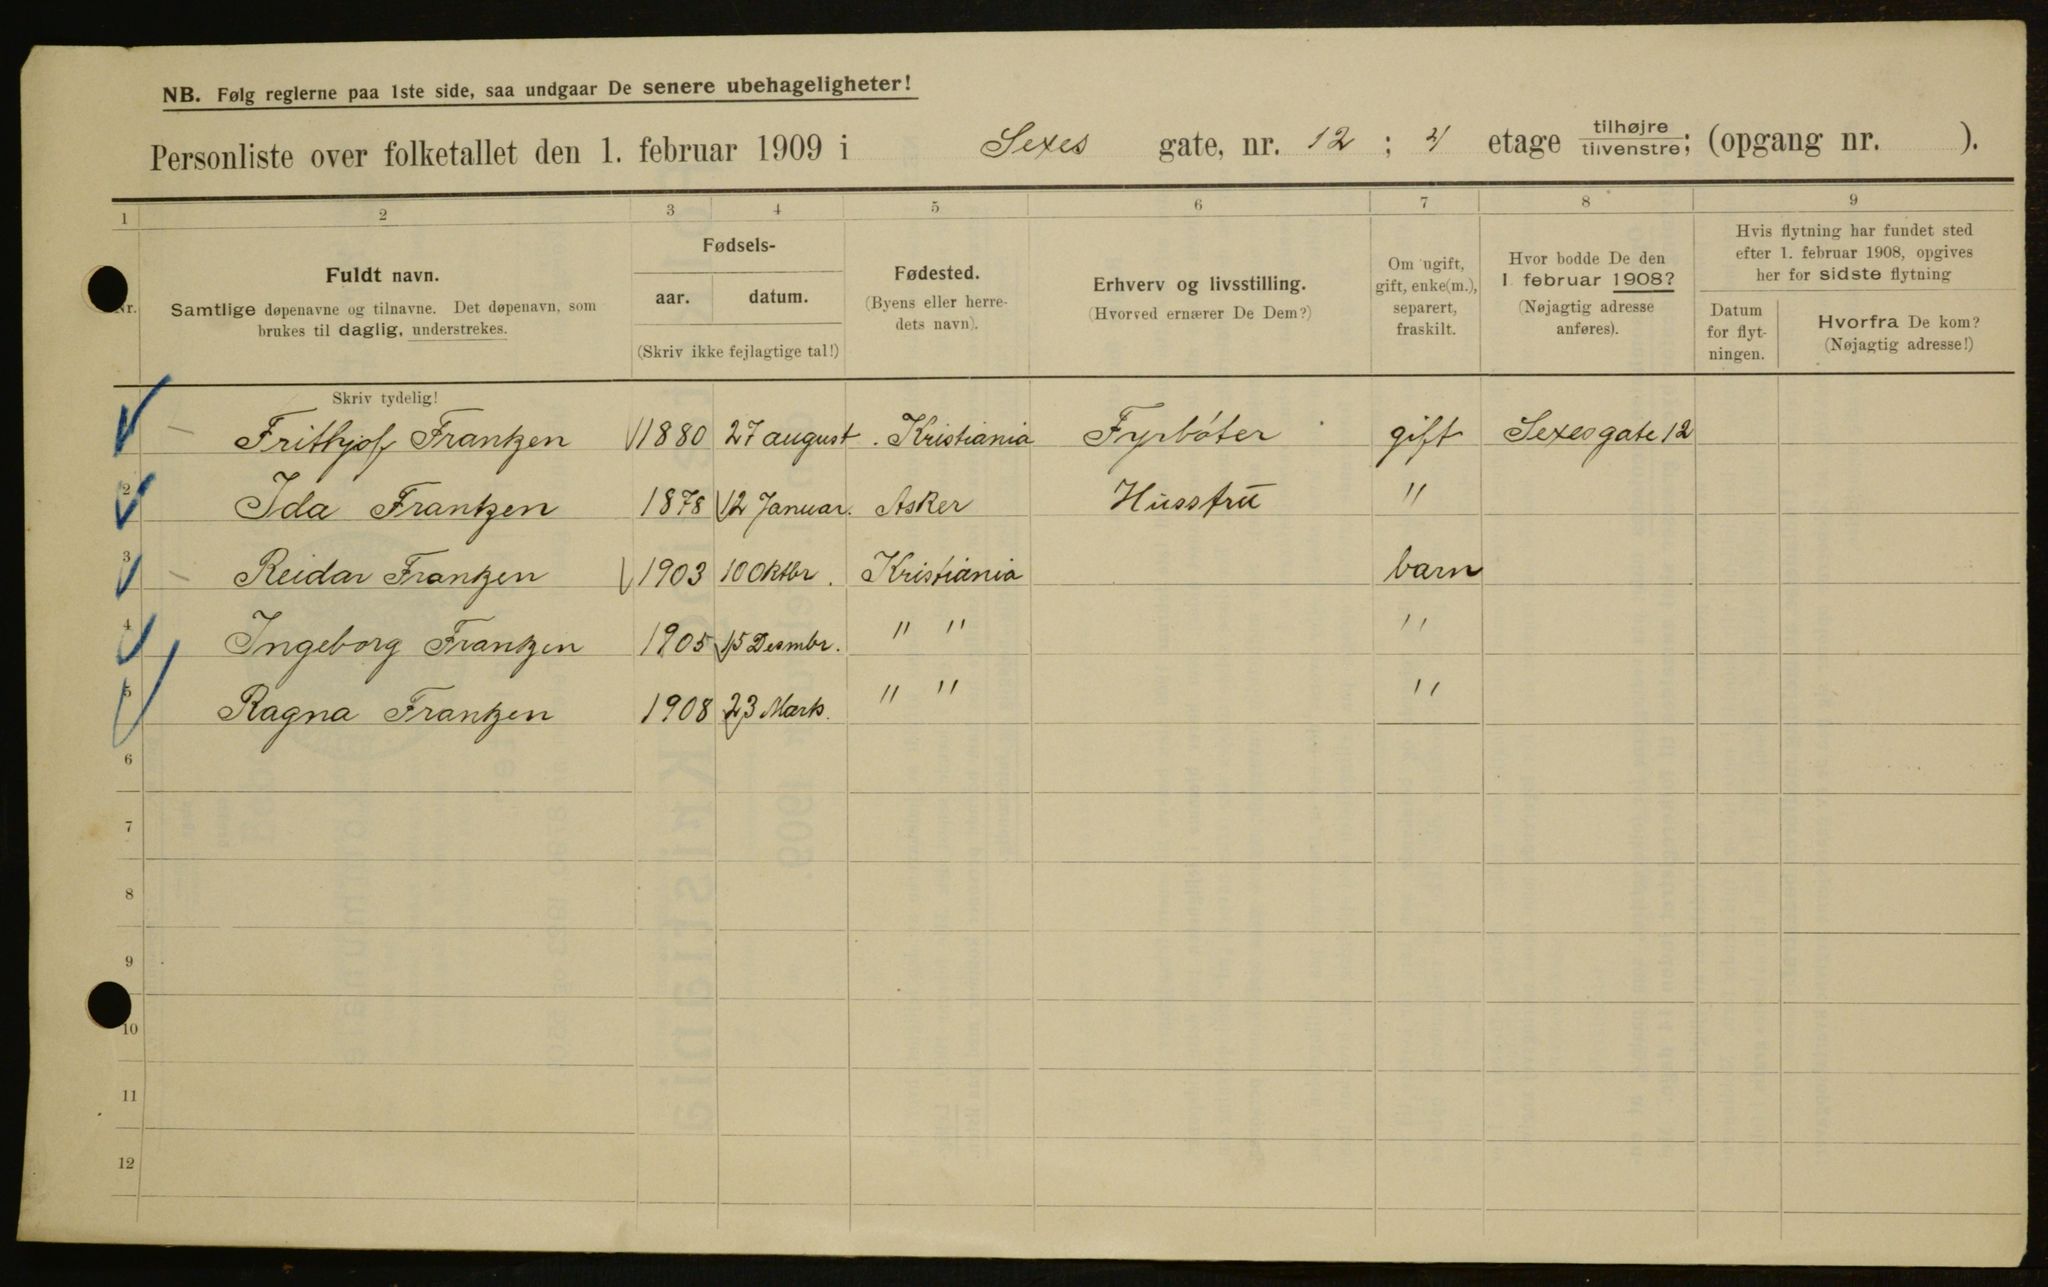 NB. Følg reglerne paa 1ste side, saa undgaar De senere ubehageligheter!
Personliste over folketallet den 1. februar 1909 i Sexes gate, nr. 12 ; 4 etage tilhøjre tilvenstre; (opgang nr. ).
1 2 3 4 5 6 7 8 9
Nr.
Fuldt navn.
Samtlige døpenavne og tilnavne. Det døpenavn, som
brukes til daglig, understrekes.
Fødsels-
aar. datum.
(Skriv ikke fejlagtige tal!)
Fødested.
(Byens eller herre-
dets navn).
Erhverv og livsstilling.
(Hvorved ernærer De Dem?)
Om ugift,
gift, enke(m.),
separert,
fraskilt.
Hvor bodde De den
1 februar 1908?
(Nøjagtig adresse
anføres).
Hvis flytning har fundet sted
efter 1. februar 1908, opgives
her for sidste flytning
Datum
for flyt-
ningen.
Hvorfra De kom?
(Nøjagtig adresse!)
Skriv tydelig!
Frithjof Frantzen 1880 27 august. Kristiania Fyrbøter gift Sexesgate 12
2 Ida Frantzen 1878 12 Januar. Asker Husstru "
3 Reidar Frantzen 1903 10 Oktbr. Kristiania barn
4 Ingeborg Frantzen 1905 15 Desmbr. " " "
5 Ragna Frantzen 1908 23 Marts. " " "
6
7
8
9
10
11
12